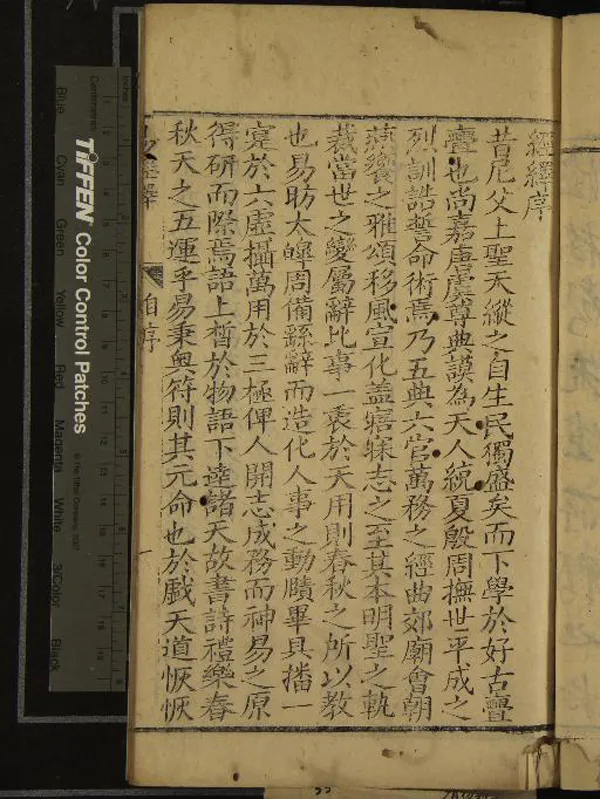 經繹序
昔尼父上聖天縱之自生民獨盛矣而下學於好古亹
亹也尚嘉唐虞尊典謨為天人統夏殷周撫世平成之
烈訓誥誓命術焉乃五典六官萬務之經曲郊廟會朝
燕饗之雅頌移風宣化蓋寤寐志之至其本明聖之執
裁當世之變屬辭比事一衷於天用則春秋之所以教
也易昉太皡周備繇辭而造化人事之動賾畢具播一
寔於六虛攝萬用於三極俾人開志成務而神易之原
得研而際焉語上晢於物語下逵諸天故書詩禮樂春
秋天之五運乎易秉奥符則其元命也於戲天道恢恢
易經繹
自序
一
TIFFEN Color Control Patches
© The Tiffen Company, 2007
Centimetres
Inches
Blue
Cyan
Green
Yellow
Red
Magenta
White
3/Color
Black